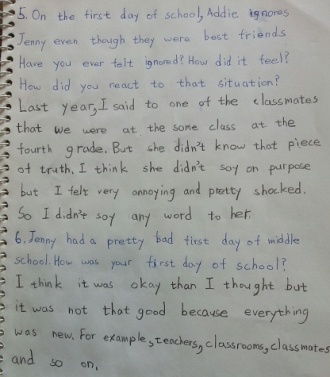 5. On the first day of school, Addie ignores
Jenny even though they were best friends
Have you ever felt ignored? How did it feel?
How did you react to that situation?
Last year, I said to one of the classmates
that we were at the same class at the
fourth grade. But she didn't know that piece
of truth. I think she didn't say on purpose
but I felt very annoying and pretty shocked.
So I didn't say any word to her.
6. Jenny had a pretty bad first day of middle
school. How was your first day of school?
I think it was okay than I thought but
it was not that good because everything
was new. For example, teachers, classrooms, classmates
and so on.